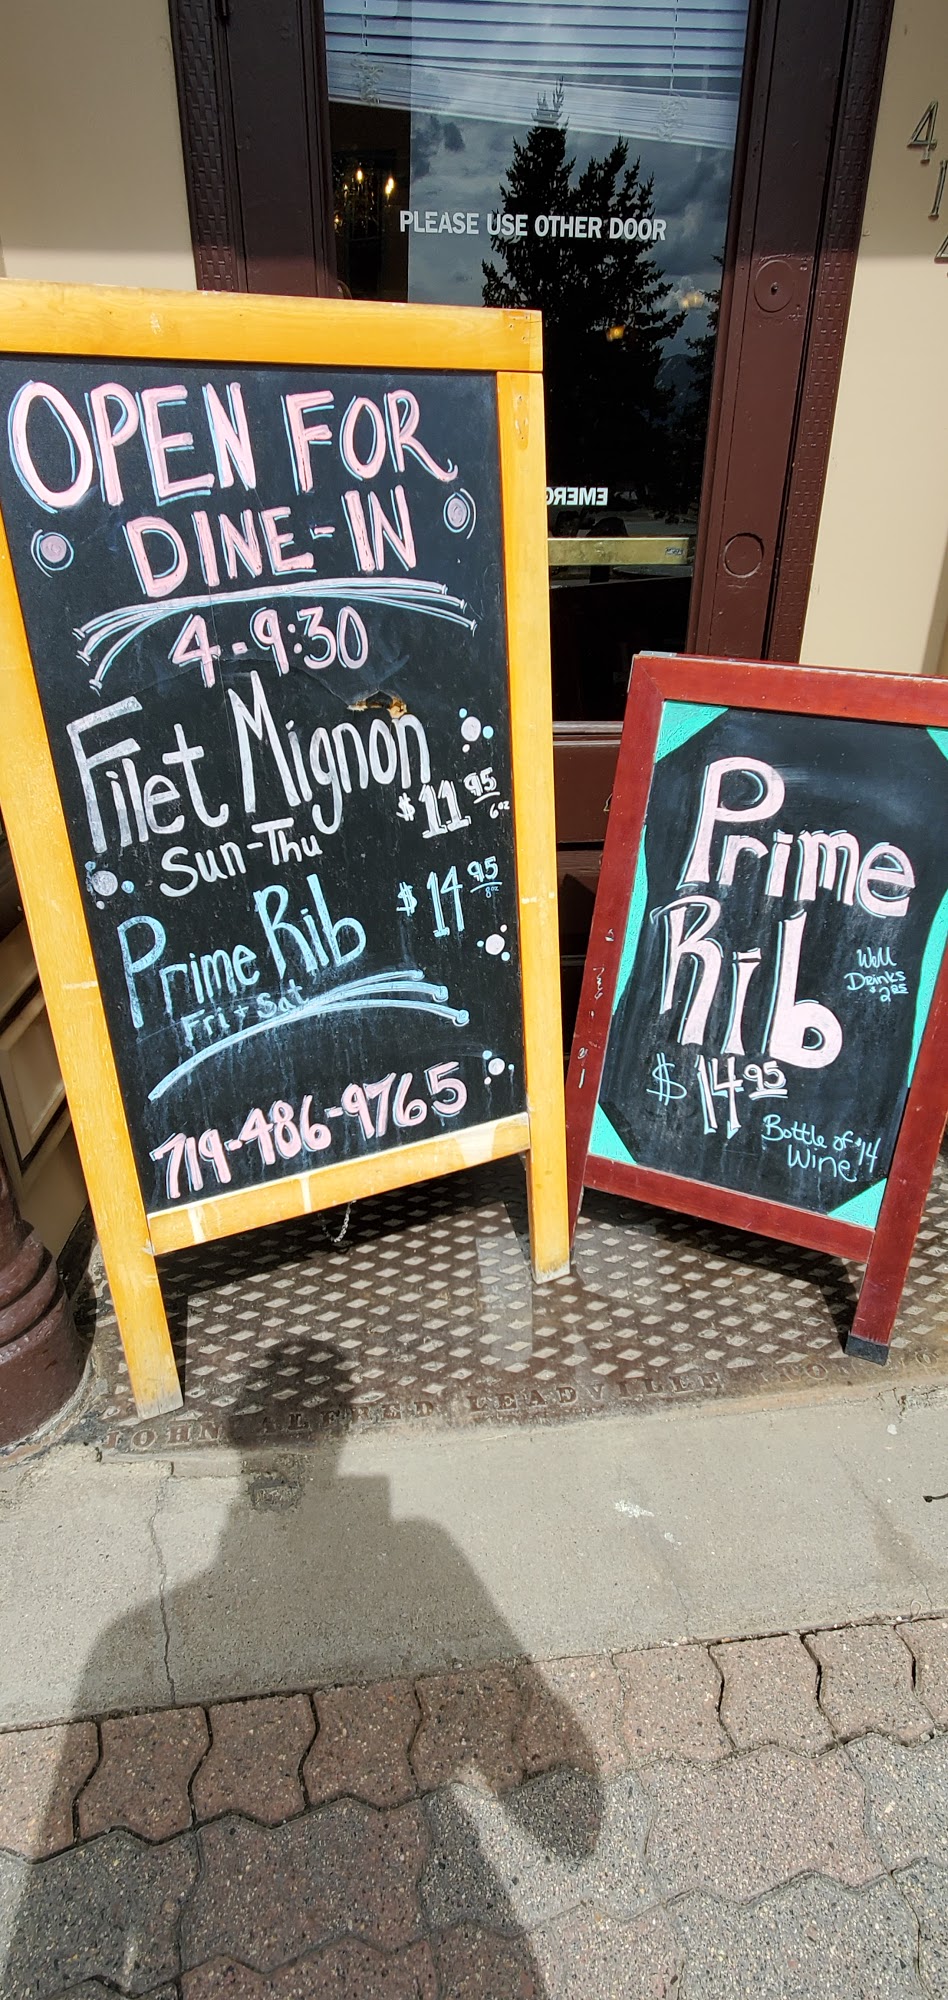 PLEASE USE OTHER DOOR
4
1
OPEN FOR
DINE-IN
4-9:30
Filet Mignon
$11.95
6oz
Sun-Thu
Prime Rib
$14.95
8oz
Fri + Sat
719-486-9765
Prime
Rib
Well
Drinks
$2.95
$14.95
Bottle of $14
Wine
JOHN ALFRED LEADVILLE